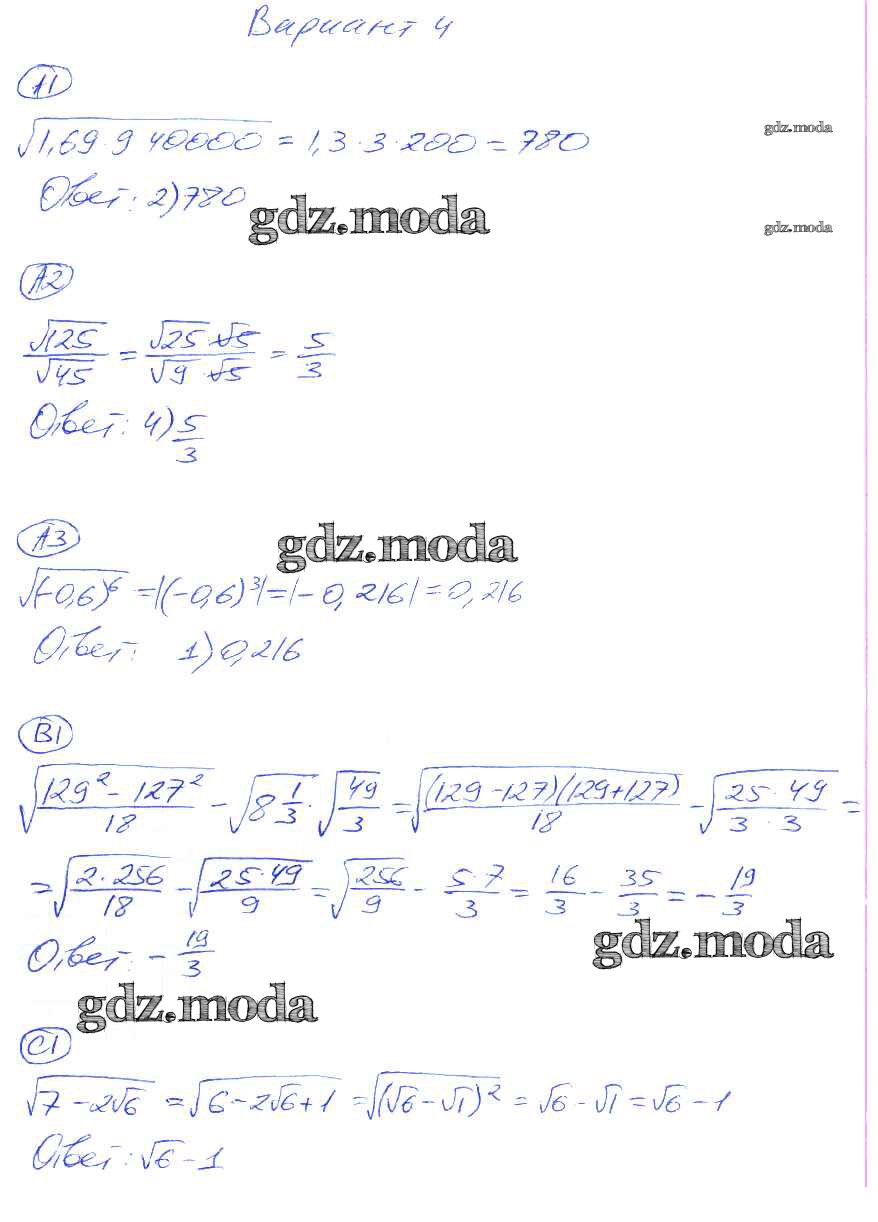 Вариант 4
A1
√(1,69·9 40000) = 1,3·3·200 = 780
gdz.moda
Ответ: 2) 780
gdz.moda
gdz.moda
A2
√125/√45 = (√25·√5)/(√9·√5) = 5/3
Ответ: 4) 5/3
A3
gdz.moda
√(-0,6)⁶ = |(-0,6)³| = |-0,216| = 0,216
Ответ: 1) 0,216
B1
√((129² - 127²)/18) - √(8 1/3) · √(49/3) = √((129-127)(129+127)/18) - √((25·49)/(3·3)) =
= √((2·256)/18) - √((25·49)/9) = √(256/9) - (5·7)/3 = 16/3 - 35/3 = -19/3
Ответ: -19/3
gdz.moda
gdz.moda
C1
√(7 - 2√6) = √(6 - 2√6 + 1) = √((√6 - √1)²) = √6 - √1 = √6 - 1
Ответ: √6 - 1